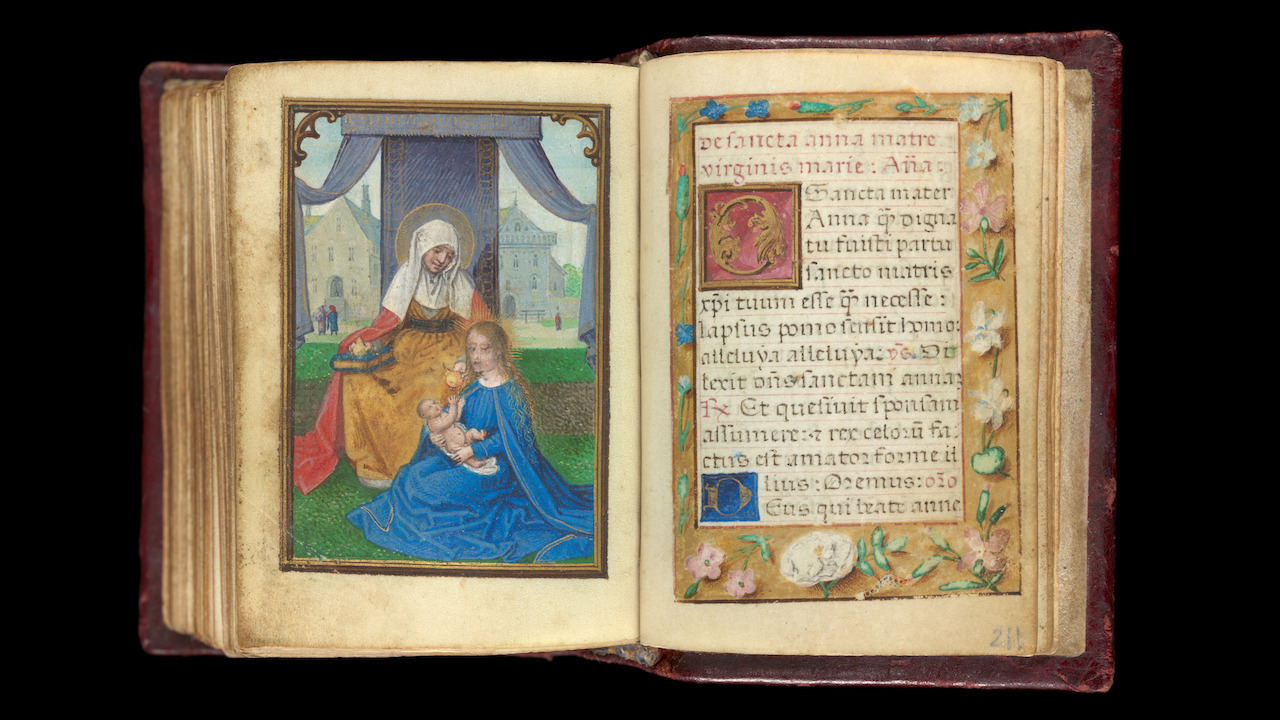 De sancta anna matre
virginis marie : Añа :
O Sancta mater
Anna q̄ digna
tu fuisti partu
sancto matris
xp̄i tuum esse q̄ necesse :
lapsus pomo sensit homo:
alleluya alleluya: vs̄. Di
lexit dn̄s sanctam annaʒ
Rx Et quesiuit sponsam
assumere: ⁊ rex celorū fa:
ctus est amator forme il
lius : Oremus: or̄o
Deus qui beate anne
211